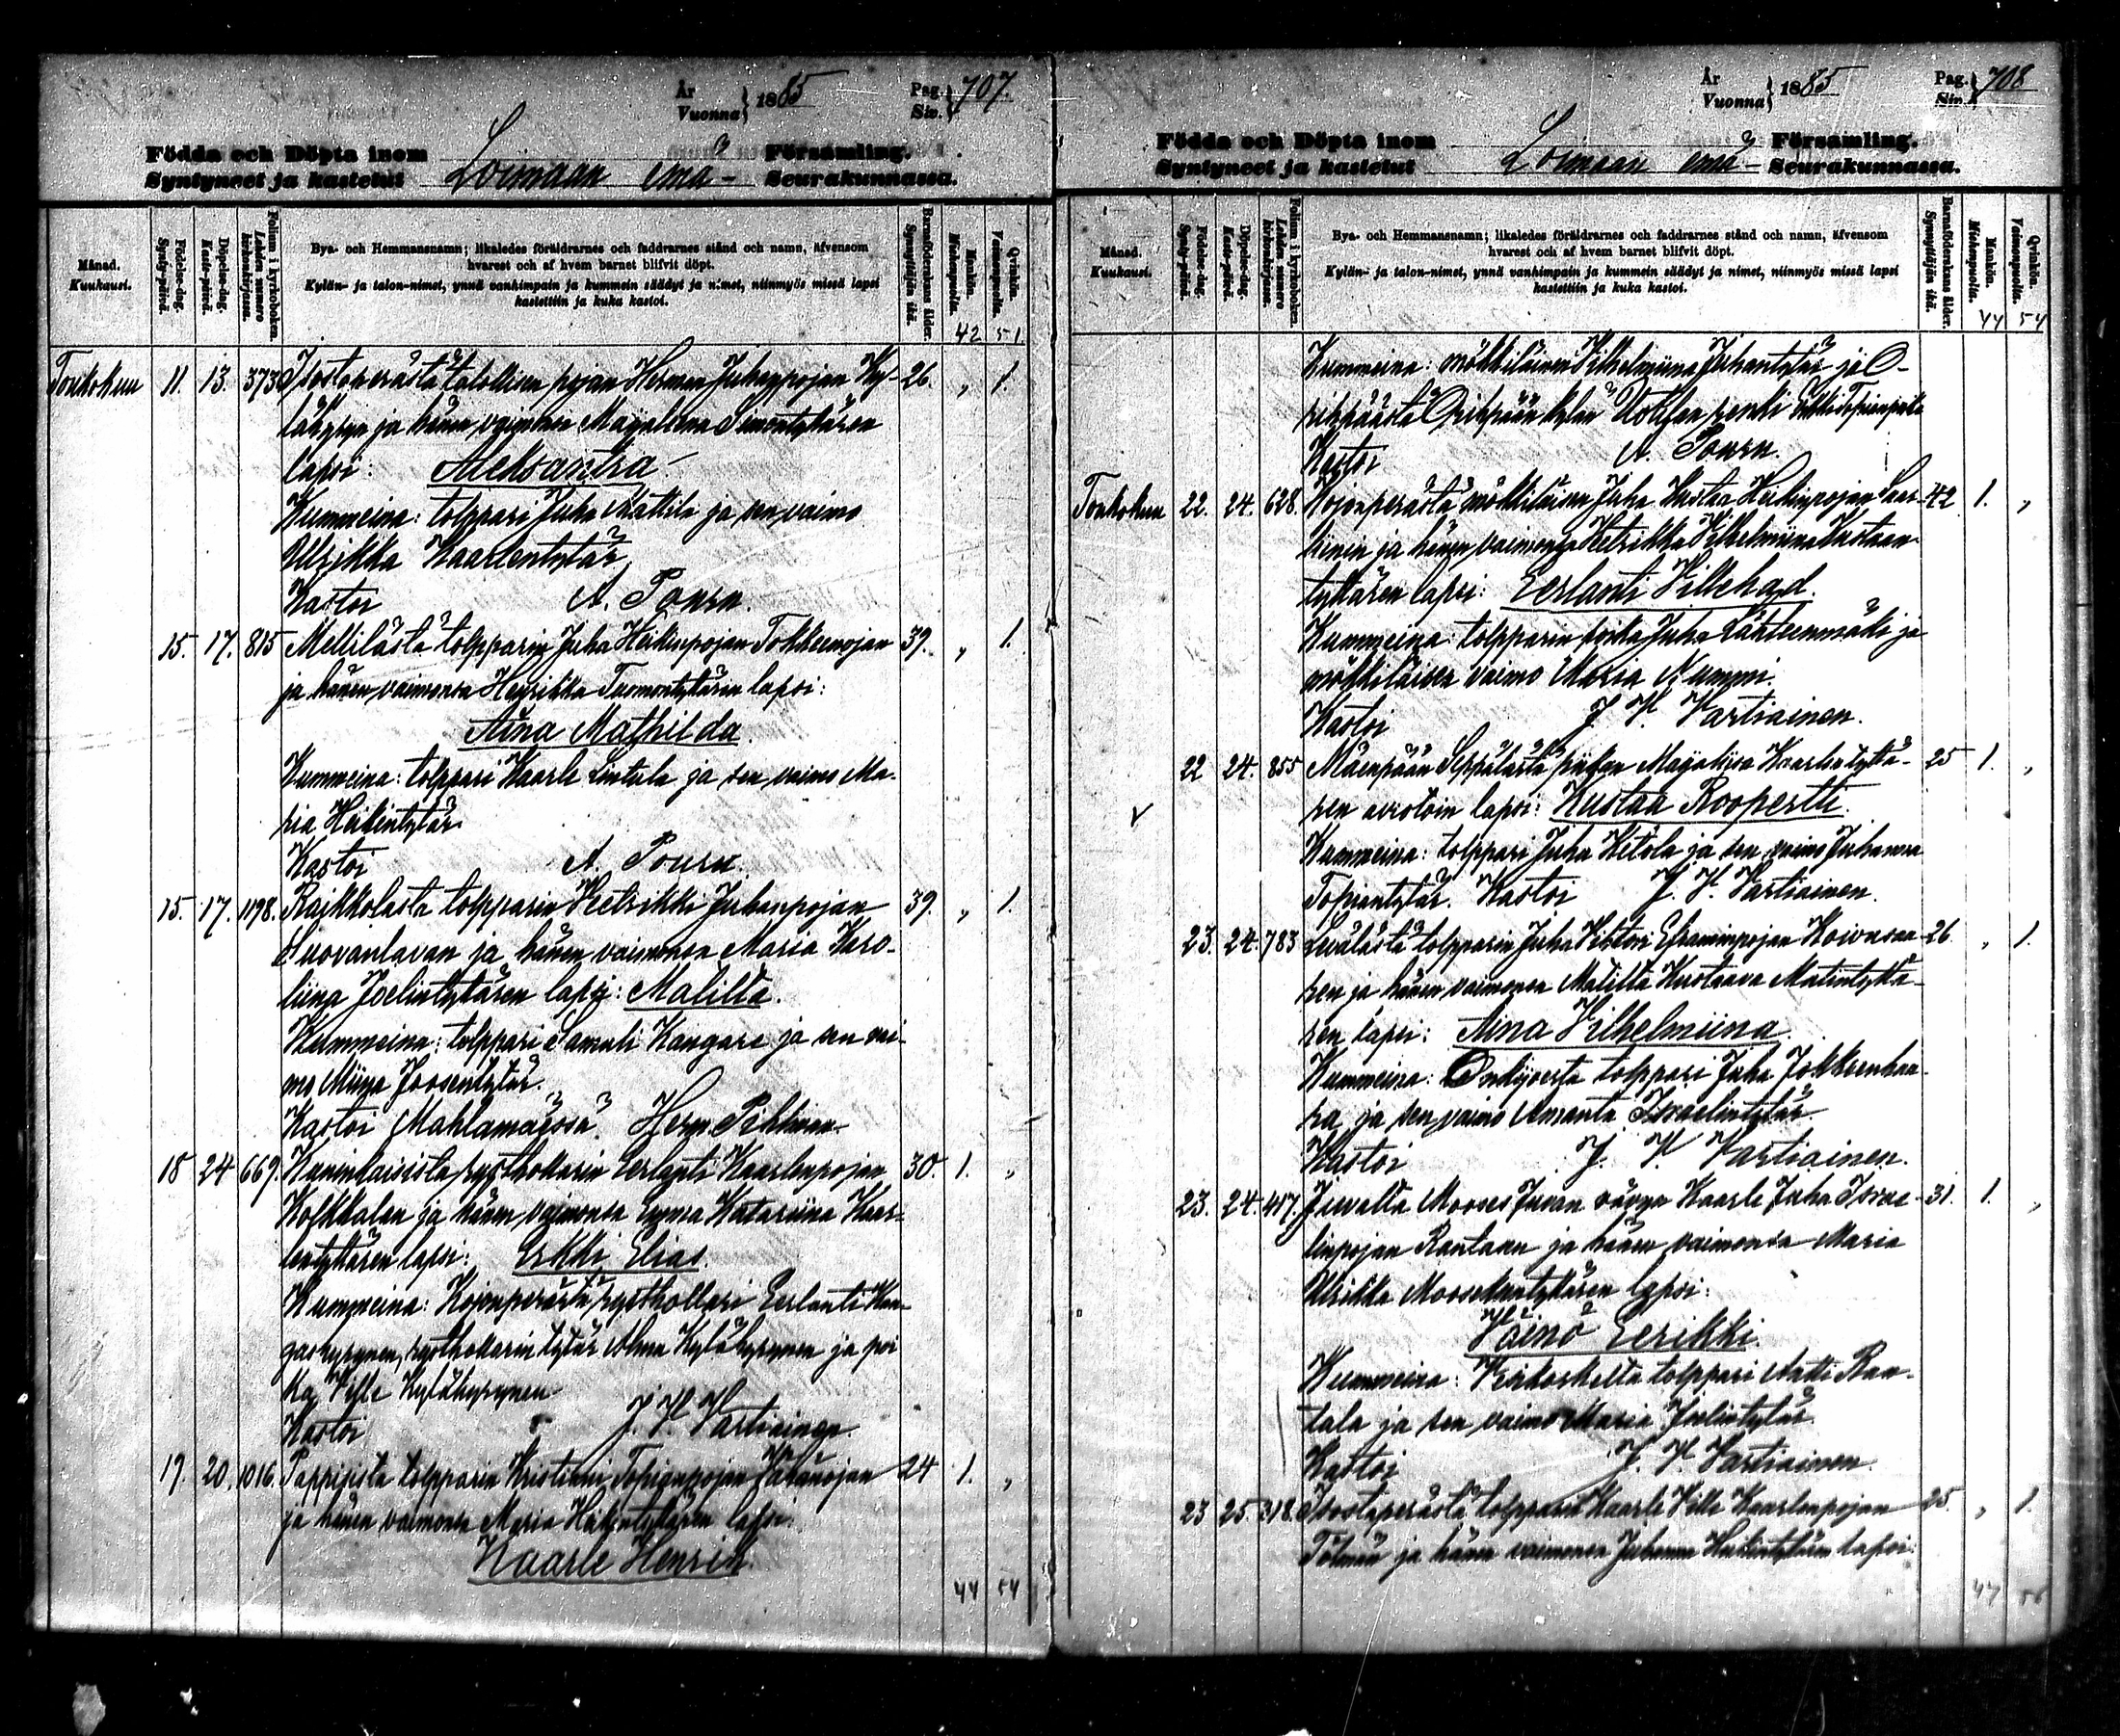 År
Vuonna } 1885
Pag.
Siv. } 707.
Födda och Döpta inom
Syntyneet ja kastetut
Loimaan emä-
Församling.
Seurakunnassa.
Månad.
Kuukausi.
Födelse-dag.
Synty-päivä.
Döpelse-dag.
Kaste-päivä.
Folium i kyrkoboken.
Lehden numero
kirkonkirjassa.
Bya- och Hemmansnamn; likaledes föräldrarnes och faddrarnes stånd och namn, äfvensom
hvarest och af hvem barnet blifvit döpt.
Kylän- ja talon-nimet, ynnä vanhimpain ja kummein säädyt ja nimet, niinmyös missä lapsi
kastettiin ja kuka kastoi.
Barnföderskans ålder.
Synnyttäjän ikä.
Mankön.
Miehenpuolia.
Qvinkön.
Vaimonpuolia.
42 51
Toukokuu 11. 13. 373 Isostaperästä talollisen pojan Herman Juhanpojan Ky- 26. „ 1.
ja hänen vaimonsa Maijaleena Simontyttären
lapsi: Aleksantra
Kummeina: tolppari Juha Mattila ja sen vaimo
Ulrikka Kaarlentytär
Kastoi A. Pouru.
15. 17. 815 Mellilästä tolpparin Juha Heikinpojan Tokkeenojan 39. „ 1.
ja hänen vaimonsa Henrikka Tuomontyttären lapsi:
Aina Mathilda.
Kummeina: tolppari Kaarle Lintula ja sen vaimo Ma-
ria Heikintytär
Kastoi A. Pouru.
15. 17. 1198. Raikkolasta tolpparin Veetrikki Juhanpojan 39. „ 1.
Suovanlavan ja hänen vaimonsa Maria Karo-
liina Joelintyttären lapsi: Matilta.
Kummeina: tolppari Samuli Kangare ja sen vai-
mo Miina Joosentytär.
Kastoi Mahlamäessä. Herm.
18 24 669. rusthollarin Eerlanti Kaarlenpojan 30. 1. „
Kolkkalan ja hänen vaimonsa Emma Katariina Kaar-
lentyttären lapsi: Erkki Elias.
Kummeina: Kojonperästä rusthollari Eerlanti Kan-
rusthollarin tytär Alma ja poi
ka Ville
Kastoi J. V. Vartiainen.
19. 20. 1016. tolpparin Kristiani Topianpojan 24 1. „
ja hänen vaimonsa Maria Heikintyttären lapsi:
Kaarle Henrik.
44 54
År
Vuonna } 1885
Pag.
Siv. } 708
Födda och Döpta inom
Syntyneet ja kastetut
Loimaan emä-
Församling.
Seurakunnassa.
Månad.
Kuukausi.
Födelse-dag.
Synty-päivä.
Döpelse-dag.
Kaste-päivä.
Folium i kyrkoboken.
Lehden numero
kirkonkirjassa.
Bya- och Hemmansnamn; likaledes föräldrarnes och faddrarnes stånd och namn, äfvensom
hvarest och af hvem barnet blifvit döpt.
Kylän- ja talon-nimet, ynnä vanhimpain ja kummein säädyt ja nimet, niinmyös missä lapsi
kastettiin ja kuka kastoi.
Barnföderskans ålder.
Synnyttäjän ikä.
Mankön.
Miehenpuolia.
Qvinkön.
Vaimonpuolia.
44 54
Kummeina: mökkiläinen Vilhelmiina Juhantytär ja O-
ripäästä Oripään kylän renki
Kastoi A. Pouru.
Toukokuu 22. 24. 628. Kojonperästä mökkiläisen Juha Kustaa Heikinpojan Saar- 42 1. „
ja hänen vaimonsa Veetrikka Vilhelmiina Kustaan-
tyttären lapsi: Eerlanti Vilehad.
Kummeina: tolpparin poika Juha Lähteenmäki ja
mökkiläisen vaimo Maria Nummi.
Kastoi J. V. Vartiainen.
22 24. 855 Mäenpään Seppälästä piian Maijaliisa Kaarlentyttä- 25 1. „
ren aviotoin lapsi: Kustaa Roopertti.
Kummeina: tolppari Juha Ketola ja sen vaimo Juhanna
Topiantytär. Kastoi J. V. Vartiainen.
23. 24. 783 Levälästä tolpparin Juha Vihtori Efraiminpojan Koivusaa- 26 „ 1.
ren ja hänen vaimonsa Matilta Kustaava Matintyttä-
ren lapsi: Aina Vilhelmiina.
Kummeina: tolppari Juha Jokkeenhaa-
ra ja sen vaimo Amanta Israelintytär
Kastoi J. V. Vartiainen.
23. 24. 417. Juvalta Mooses Juvan vävyn Kaarle Juha Israe- 31. 1. „
linpojan Rantasen ja hänen vaimonsa Maria
Ulrikka Mooseksentyttären lapsi:
Väinö Eerikki.
Kummeina: Virkoskelta tolppari Antti Ran-
tala ja sen vaimo Maria Joelintytär.
Kastoi J. V. Vartiainen.
23 25 318. Isostaperästä tolpparin Kaarle Ville Kaarlenpojan 25. „ 1.
ja hänen vaimonsa Juhanna Heikintyttären lapsi: